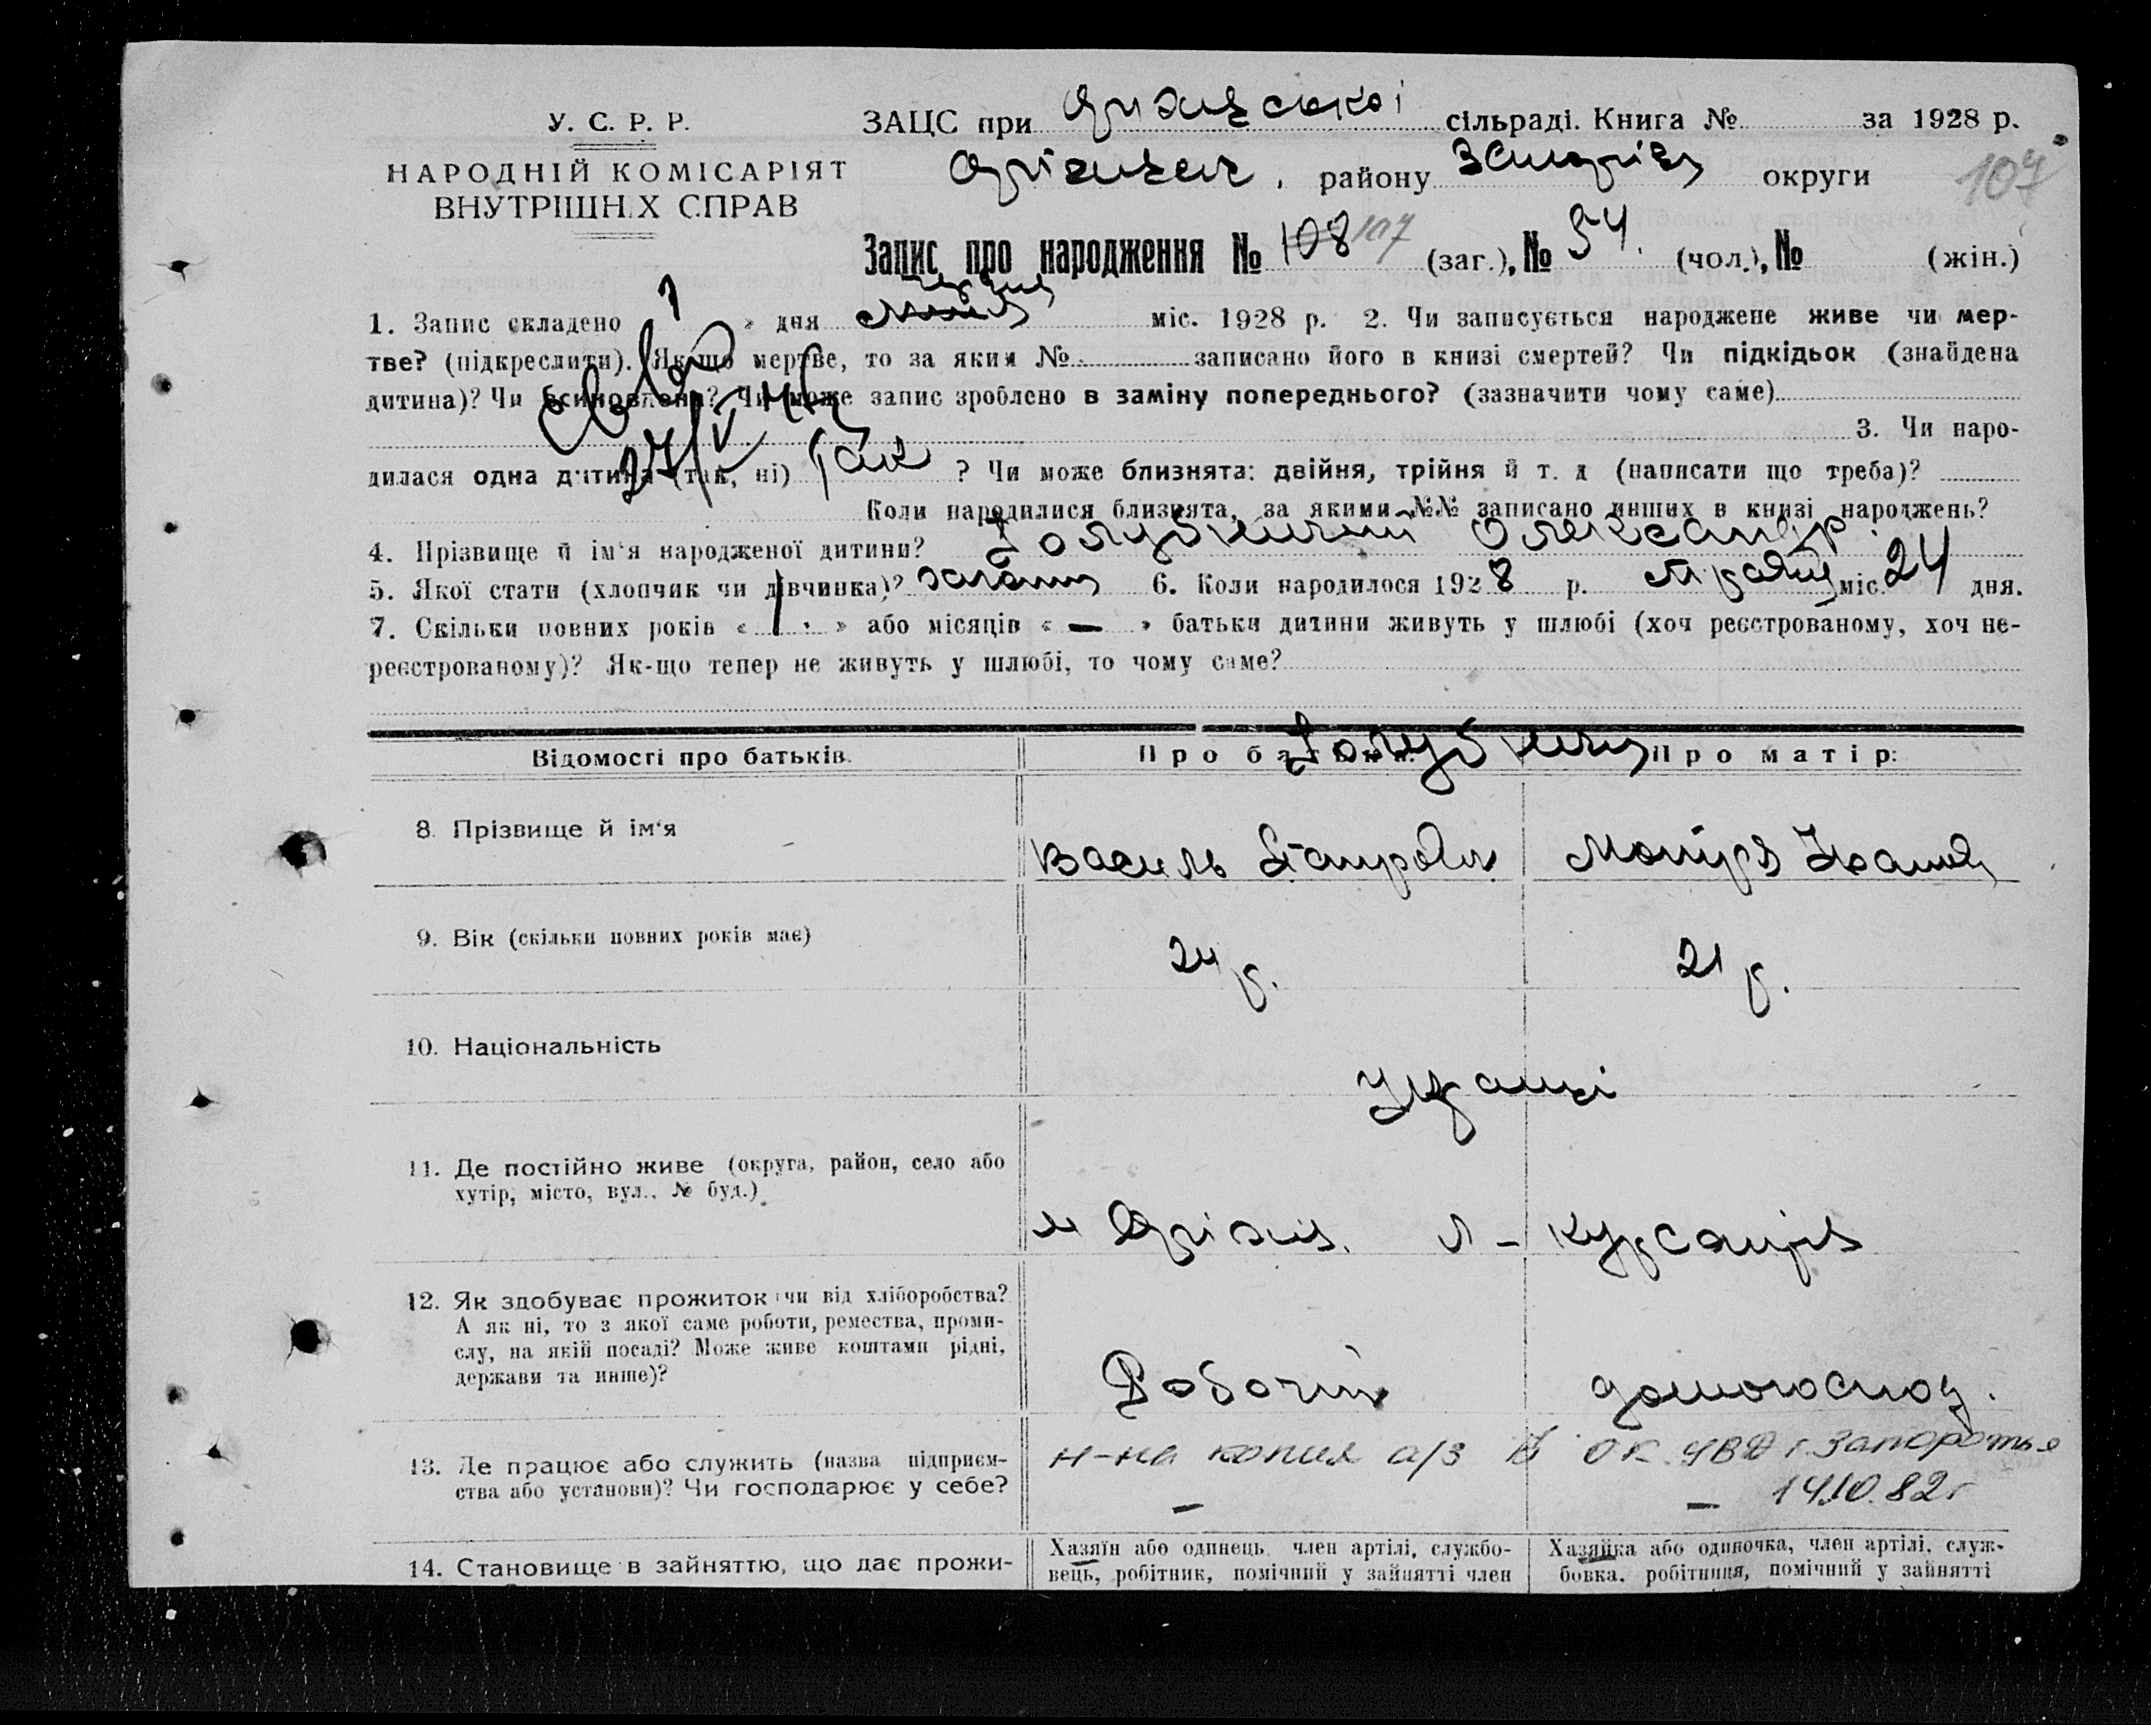 У. С. Р. Р.
НАРОДНІЙ КОМІСАРІЯТ
ВНУТРІШНІХ СПРАВ
ЗАЦС при Оріхівської сільраді. Книга № за 1928 р.
Оріхівськ. району Запоріз округи
107
Запис про народження № 108 107 (заг.), № 54. (чол.), № (жін.)
1. Запис складено 1 » дня червня міс. 1928 р. 2. Чи записується народжене живе чи мер-
тве? (підкреслити). Як-що мертве, то за яким № записано його в книзі смертей? Чи підкідьок (знайдена
дитина)? Чи всиновлена? Чи може запис зроблено в заміну попереднього? (зазначити чому саме)
27/V
3. Чи наро-
дилася одна дитина (так, ні) так ? Чи може близнята: двійня, трійня й т. д (написати що треба)?
Коли народилися близнята, за якими №№ записано инших в книзі народжень?
4. Прізвище й ім'я народженої дитини? Голубничий Олександр
5. Якої стати (хлопчик чи дівчинка)? 6. Коли народилося 1928 р. травня міс. 24 дня.
7. Скільки повних років « 1 » або місяців « — » батьки дитини живуть у шлюбі (хоч реєстрованому, хоч не-
реєстрованому)? Як-що тепер не живуть у шлюбі, то чому саме?
Відомості про батьків. Про батька: Про матір:
Голубничі
8. Прізвище й ім'я Василь Мотря Іванів
9. Вік (скільки повних років має) 24 р. 21 р.
10. Національність Українці
11. Де постійно живе (округа, район, село або
хутір, місто, вул., № буд.) м Оріхів. Л – Курсантів
12. Як здобуває прожиток чи від хліборобства?
А як ні, то з якої саме роботи, ремества, проми-
слу, на якій посаді? Може живе коштами рідні,
держави та инше)? Робочий домогоспод.
13. Де працює або служить (назва підприєм-
ства або установи)? Чи господарює у себе? — —
н-на копия а/з в ОК УВД г. Запорожья
14.10.82г
14. Становище в зайняттю, що дає прожи-
Хазяїн або одинець, член артілі, службо-
вець, робітник, помічний у зайнятті член
Хазяйка або одиночка, член артілі, служ-
бовка, робітниця, помічний у зайнятті